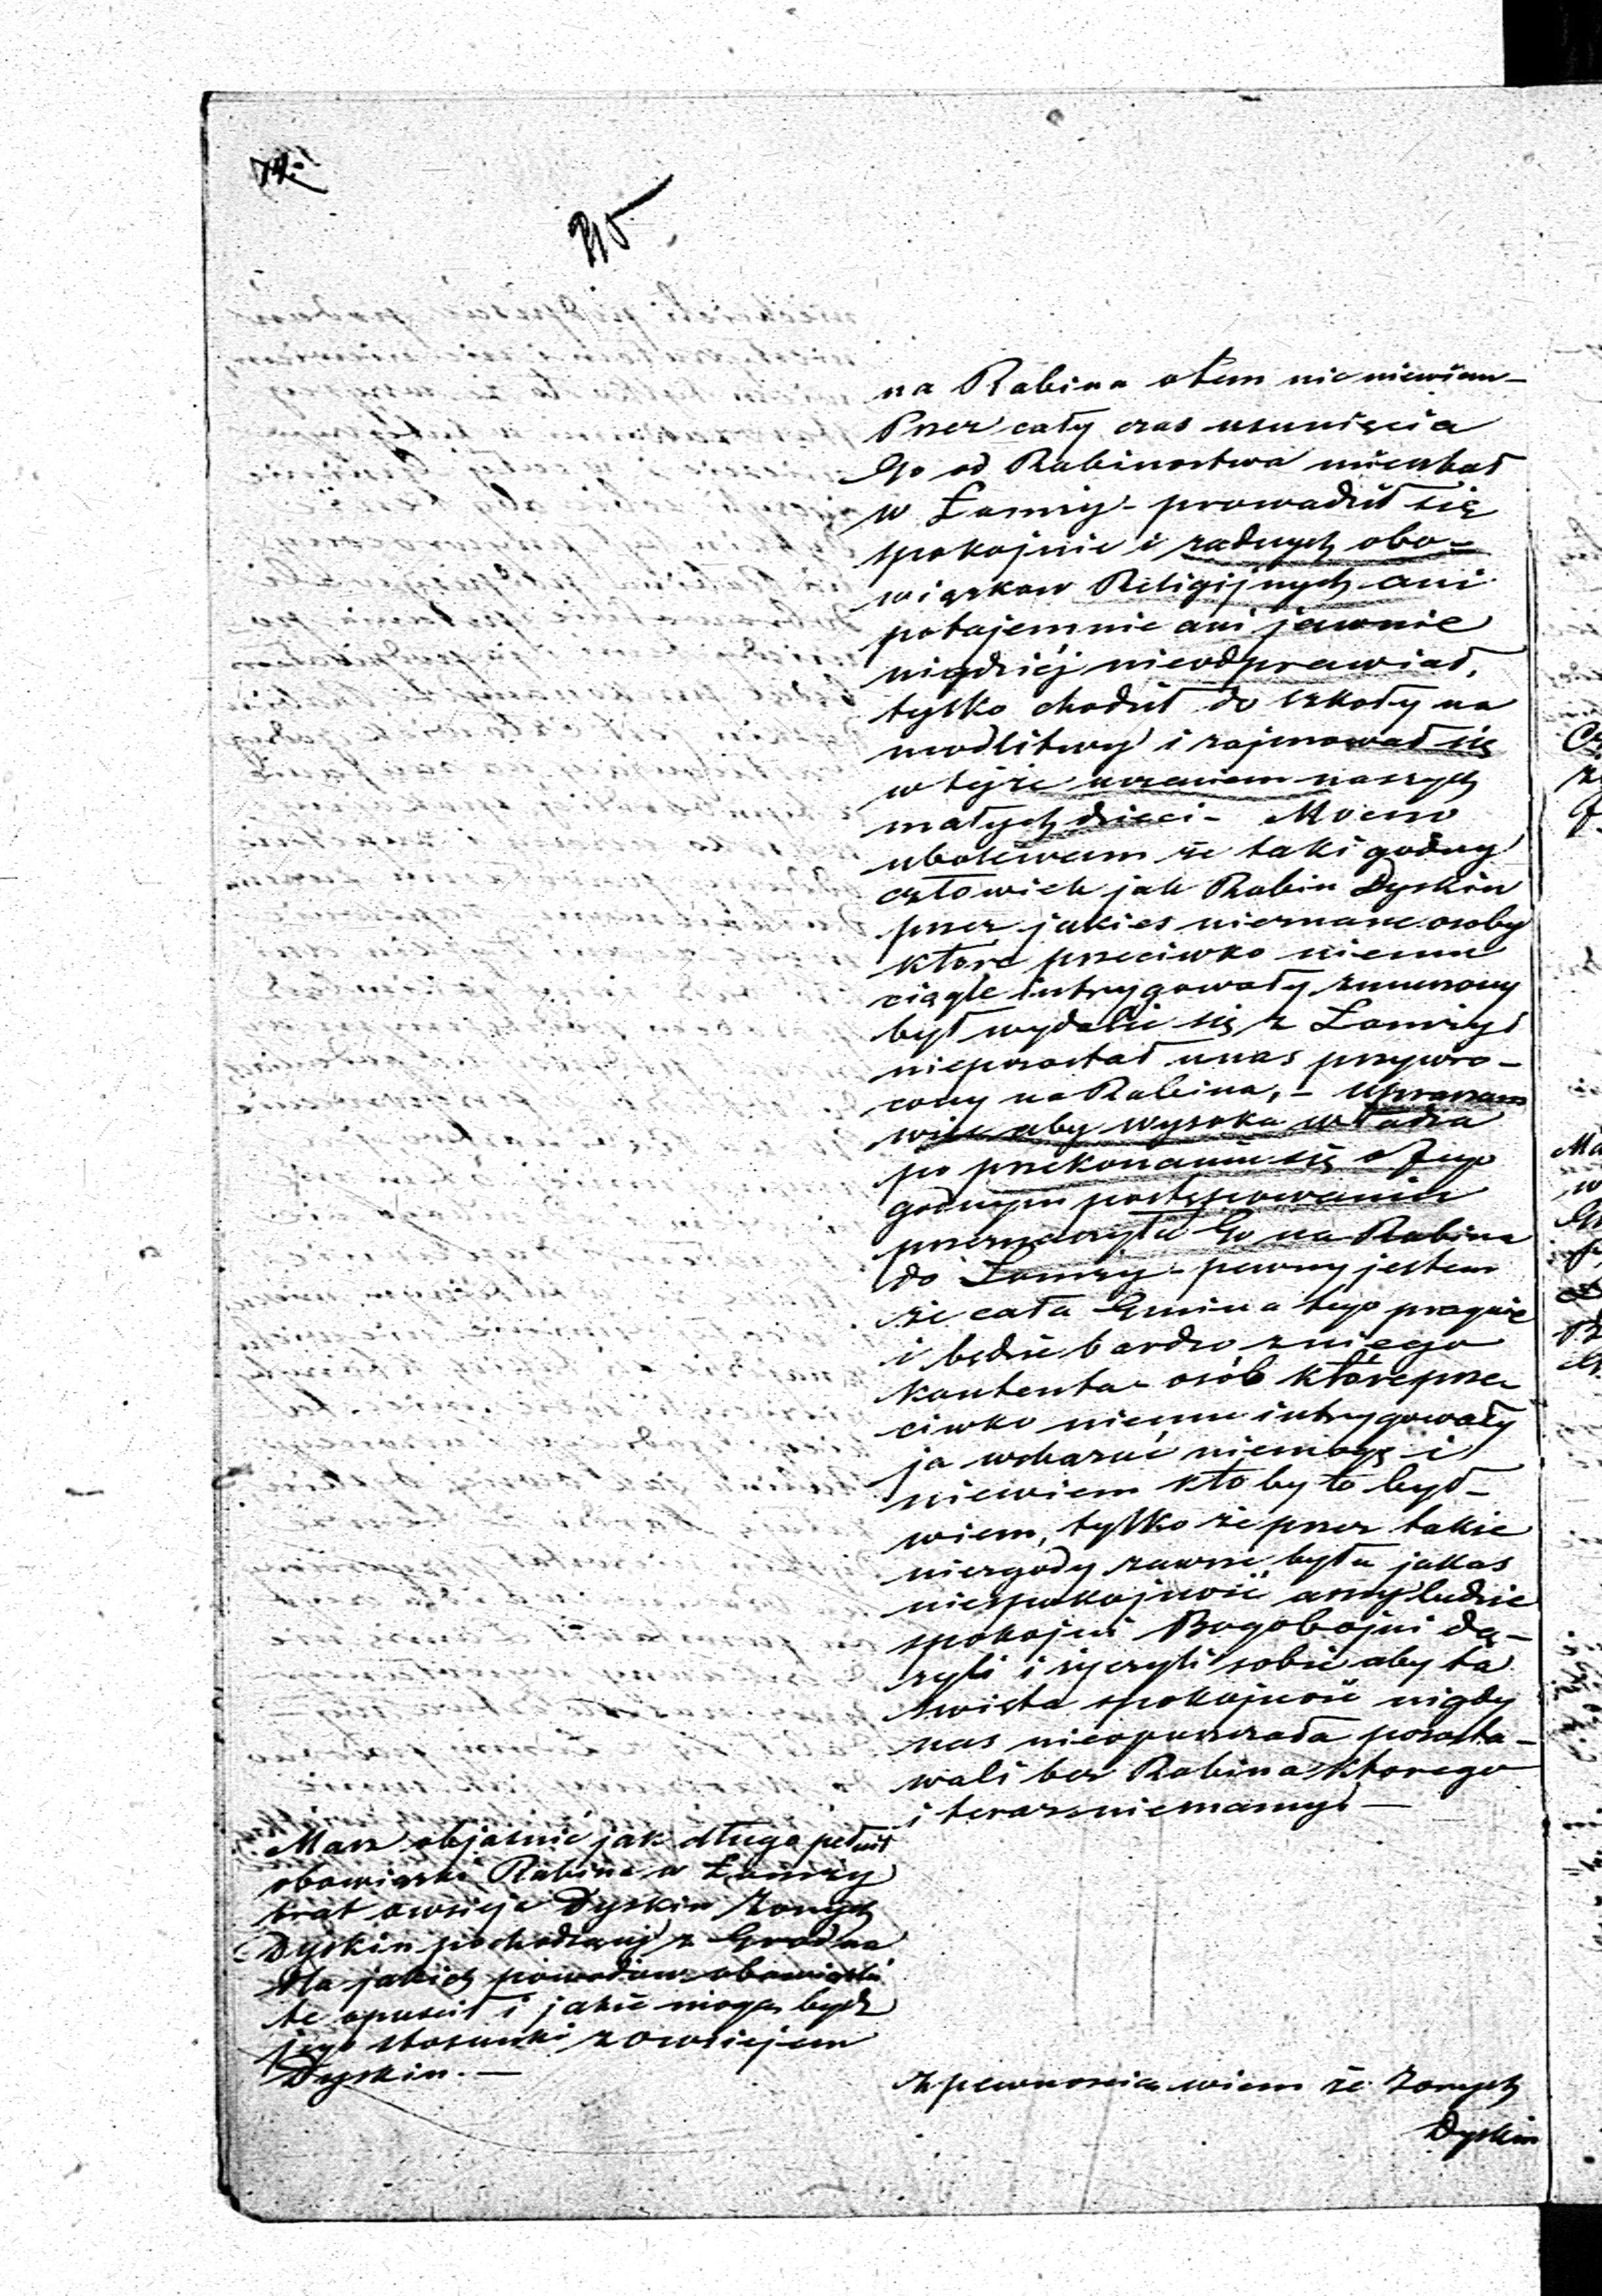 74.
na Rabina otem nic niewiem –
Przez cały czas usunięcia
Go od Rabinostwa mieszkał
w Łomży – prowadził się
spokojnie i zadnych obo-
wiązkow Religijnych ani
potajemnie ani jawnie
nigdziéj nieodprawiał,
tylko chodził do szkoły na
modlitwy i zajmował się
w tejże uczeniem naszych
małych dzieci – Mocno
ubolewam że taki godny
człowiek jak Rabin Dyskin
przez jakies nieznane osoby
które przeciwko niemu
ciągle intrygowały zmuszony
był wydalić się z Łomży i
niepozostał unas przywró-
cony na Rabina, – Upraszam
więc aby wysoka władza
po przekonaniu się o Jego
godnym postępowaniu
przeznaczyła Go na Rabina
do Łomży – pewny jestem
że cała Gmina tego pragnie
i będzie bardzo zniego
kontenta – osób które prze
ciwko niemu intrygowały
ja wskazać niemogę i
niewiem kto by to był –
wiem, tylko że przez takie
niezgody zawsze była jakas
niespokojność a my ludzie
spokojni Bogobojni dą-
żyli i życzyli sobie aby ta
swięta spokojność nigdy
nas nieopuszczała pozosta-
wali bez Rabina ktorego
i teraz niemamy. –
Masz objasnić jak długo pełnił
obowiązki Rabina w Łomży
brat Owsieja Dyskin Zonych
Dyskin pochodzący z Grodna
dla jakich powodow obowiązki
te opuscił i jakie mogą bydz
jego stosunki z Owsiejem
Dyskin. –
Z pewnoscią wiem że Zonych
Dyskin